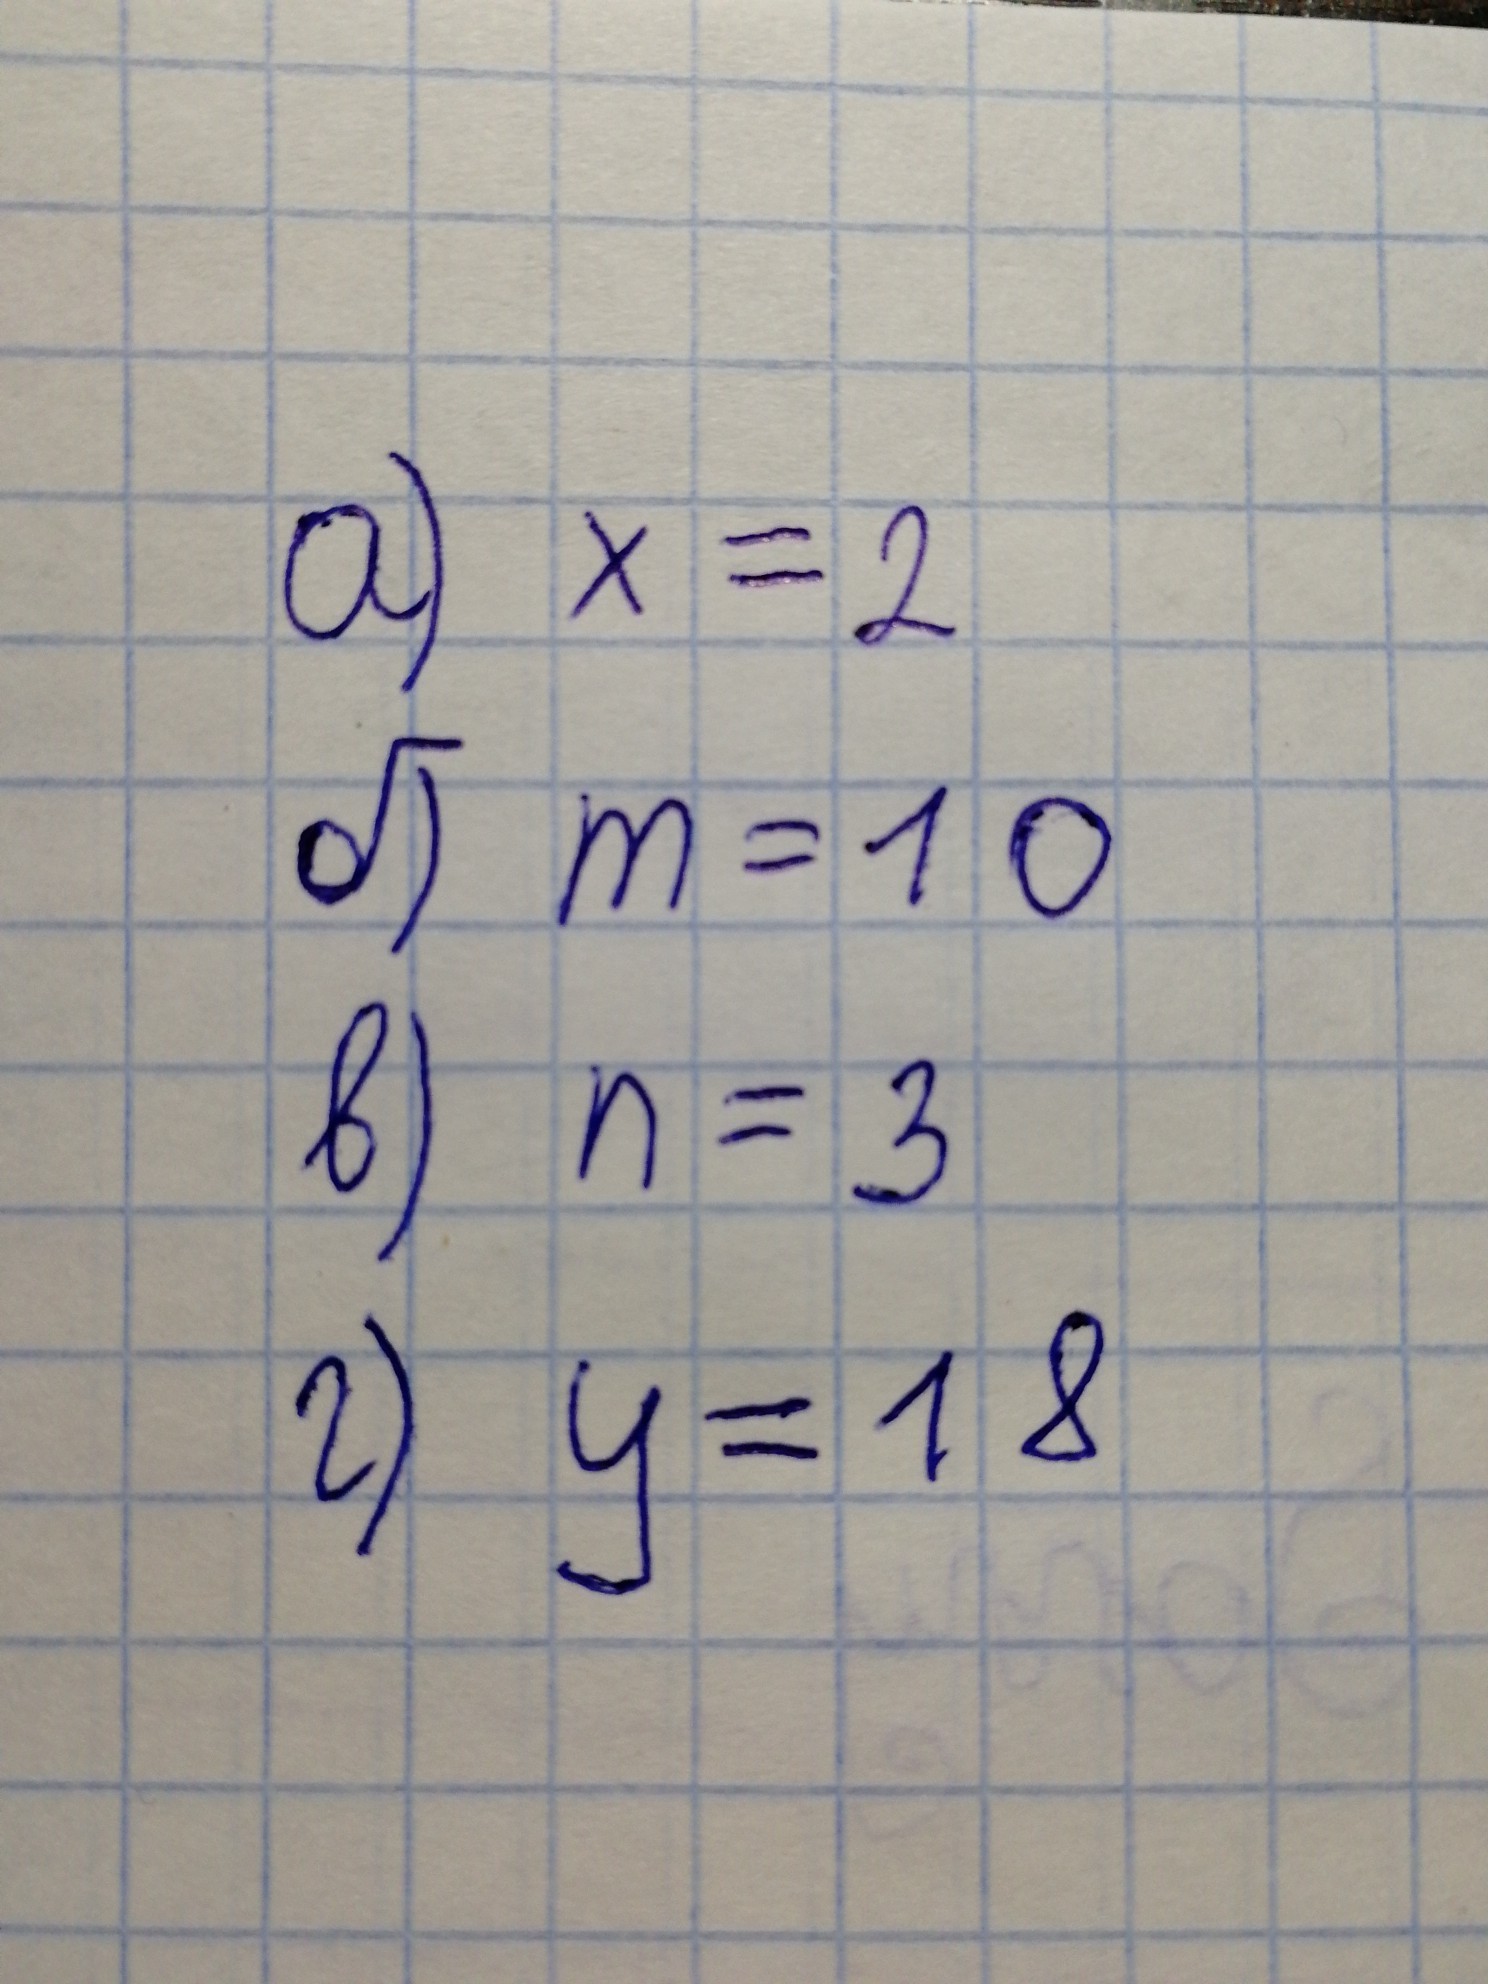 а) x = 2
б) m = 10
в) n = 3
г) y = 18